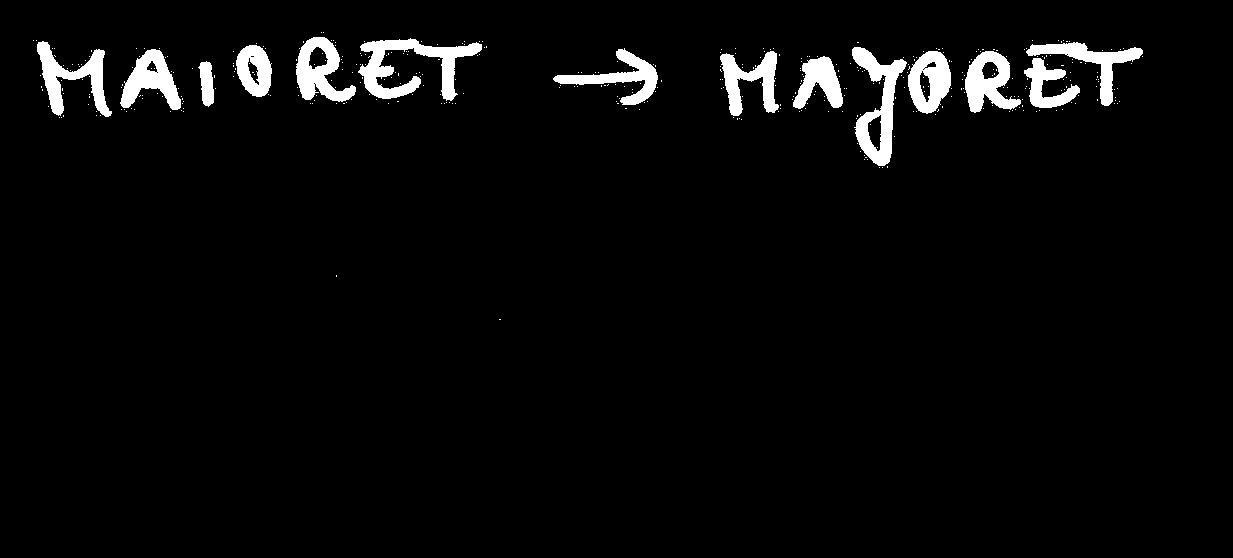 MAIORET → MAYORET